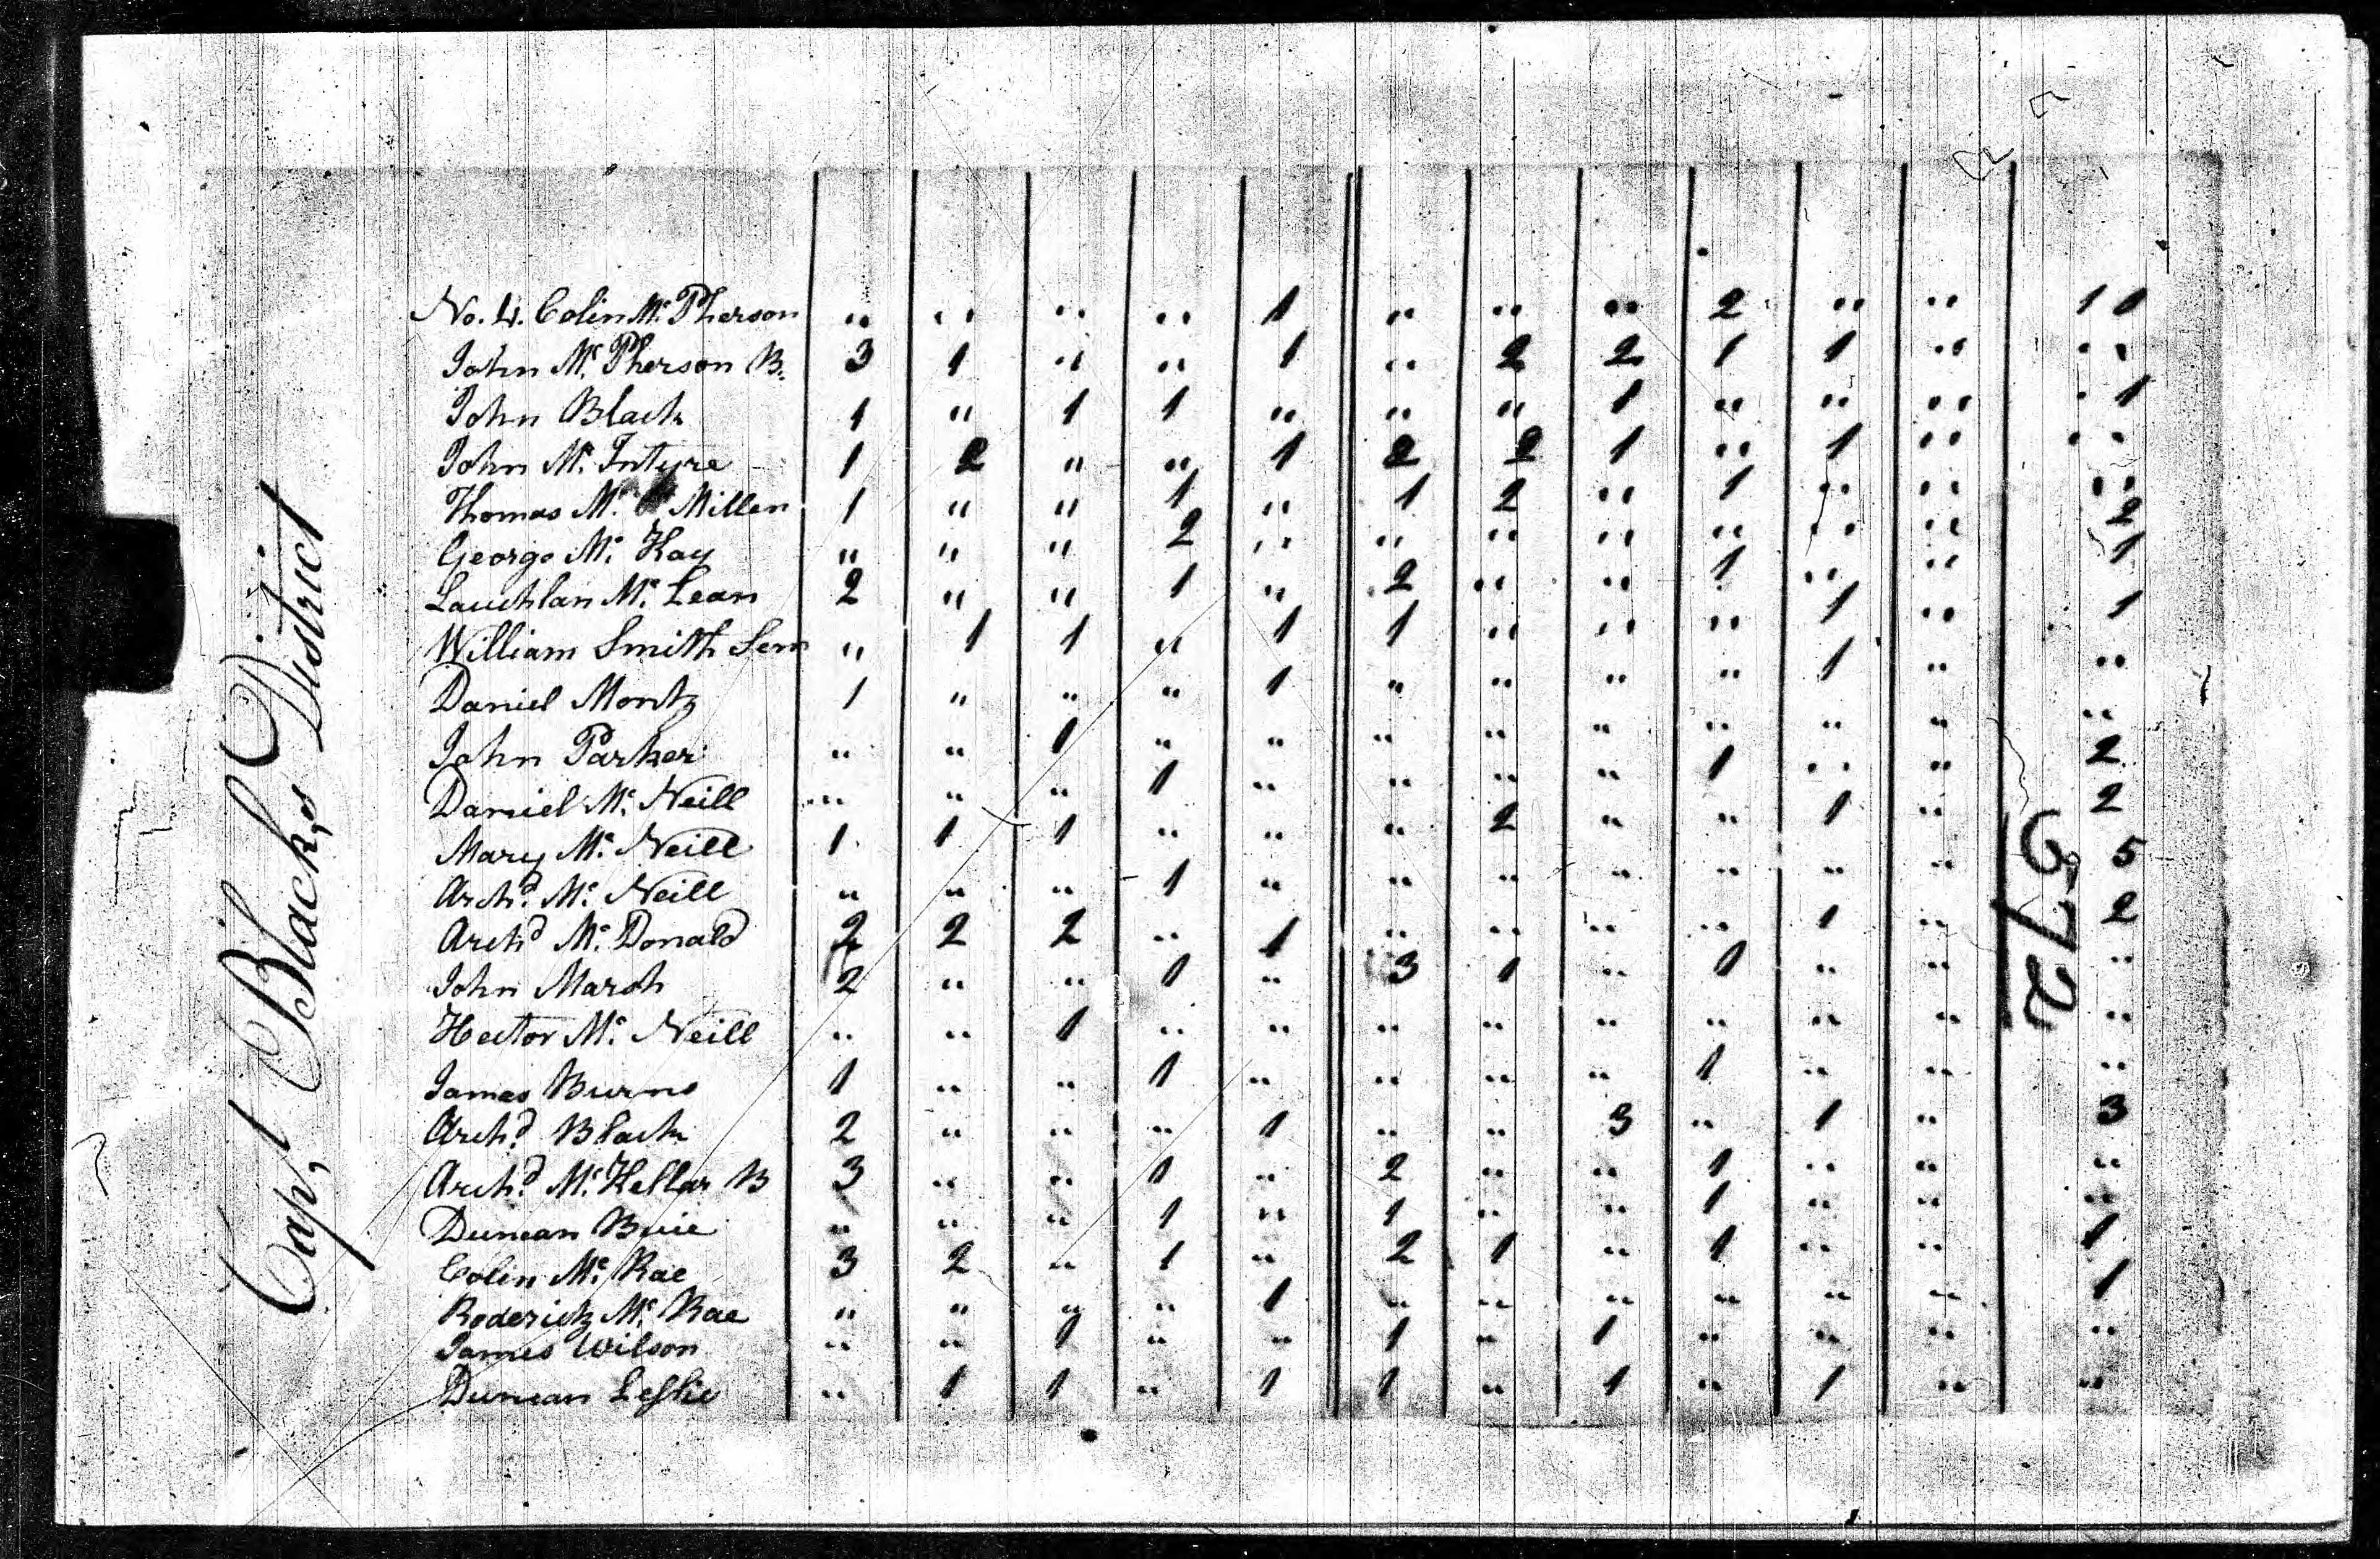 Capt Black,s District
No. 4. Colin Mc. Pherson " " " " 1 " " " 2 " " 11
John Mc. Pherson B. 3 1 " " 1 " 2 2 1 1 " "
John Black 1 " 1 1 " " " 1 " " " 1
John Mc. Intyre 1 2 " " 1 2 2 1 " 1 " "
Thomas Mc. Millen 1 " " 1 " 1 2 " 1 " " "
George Mc. Kay " " " 2 " " " " " " " 2
Lauchlan Mc. Lean 2 " " 1 " 2 " " 1 " " 1
William Smith Senr " 1 1 " 1 1 " " " 1 " 1
Daniel Montz 1 " " " 1 " " " " 1 " "
John Parker " " 1 " " " " " " " " "
Daniel Mc. Neill " " " 1 " " " " 1 " " 2
Mary Mc. Neill 1 1 1 " " " 2 " " 1 " 2
Archd. Mc. Neill " " " 1 " " " " " " " 5
Archd Mc. Donald 2 2 2 " 1 " " " " 1 " 2
John Marsh 2 " " 1 " 3 1 " 1 " " "
Hector Mc. Neill " " 1 " " " " " " " " "
James Burns 1 " " 1 " " " " 1 " " "
Archd. Black 2 " " " 1 " " 3 " 1 " 3
Archd. Mc. Kellar B 3 " " 1 " 2 " " 1 " " "
Duncan Buie " " " 1 " 1 " " 1 " " "
Colin Mc. Rae 3 2 " 1 " 2 1 " 1 " " 1
Roderick Mc. Rae " " " " 1 " " " " " " 1
James Wilson " " 1 " " 1 " 1 " " " "
Duncan Leslie " 1 1 " 1 1 " 1 " 1 " "
672